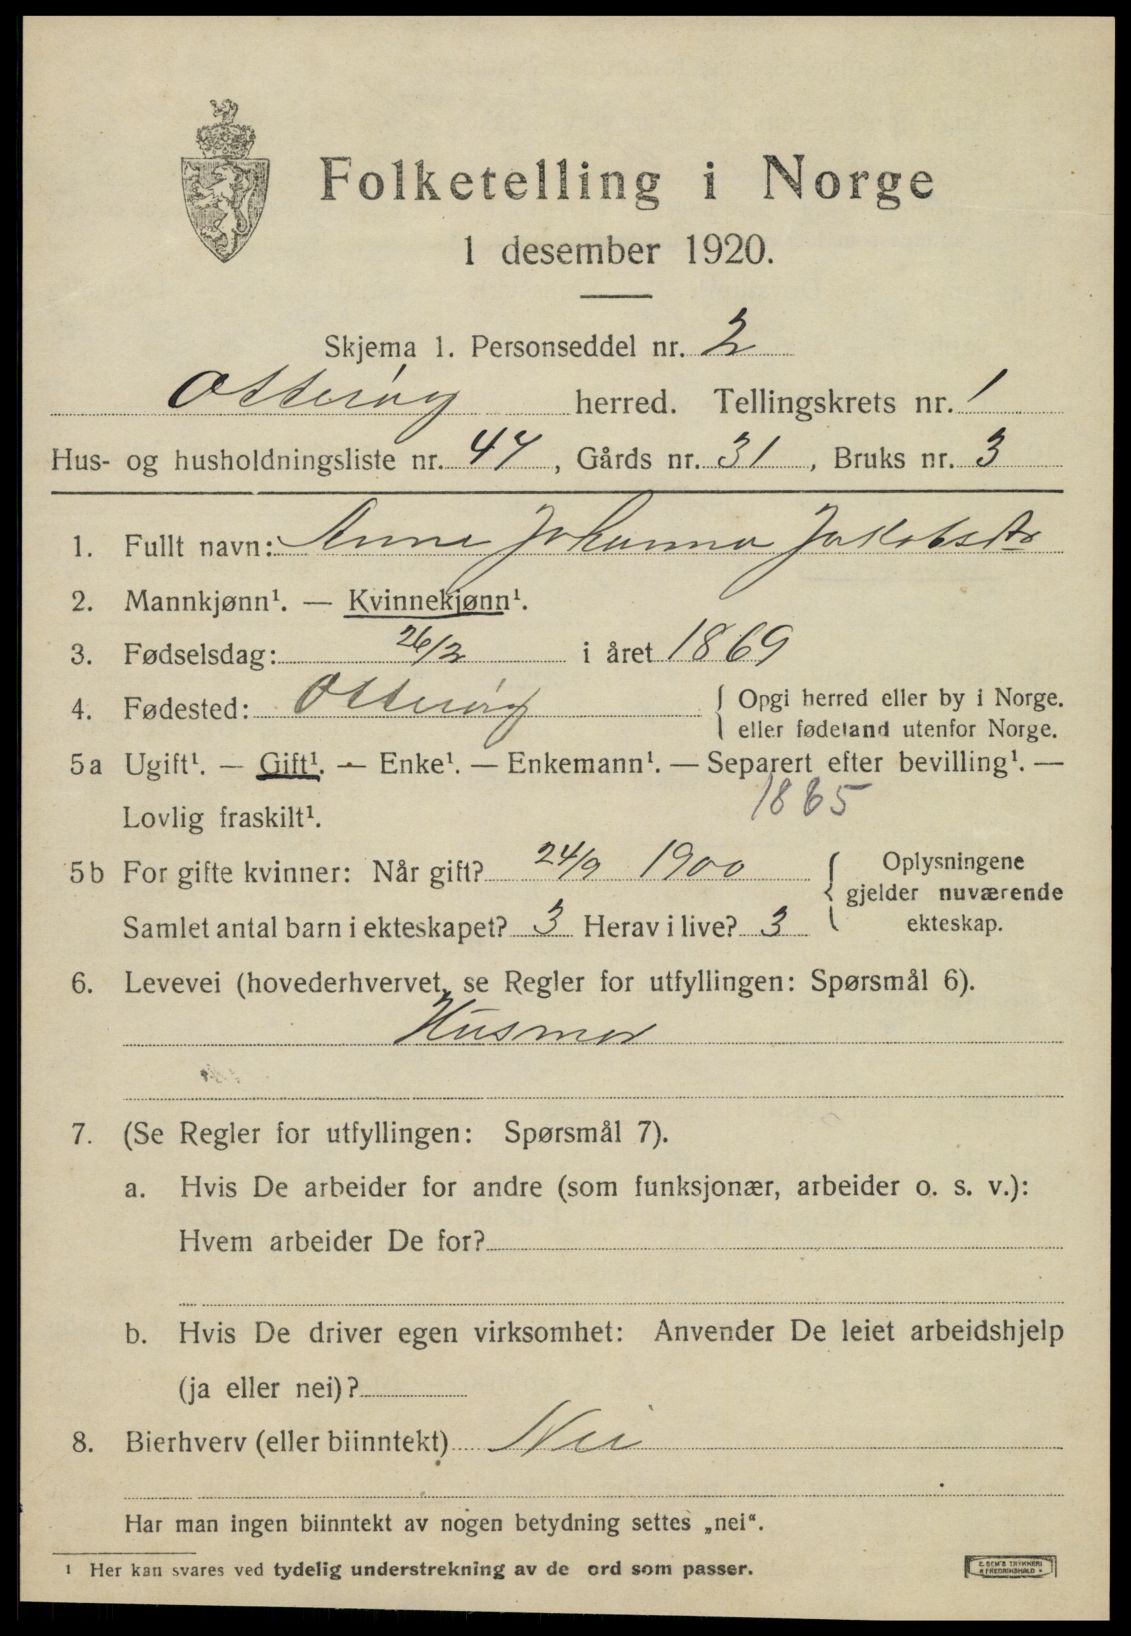 Folketelling i Norge
1 desember 1920.
Skjema 1. Personseddel nr. 2
Otterøy herred. Tellingskrets nr. 1
Hus- og husholdningsliste nr. 47, Gårds nr. 31, Bruks nr. 3
1. Fullt navn: Anne Johanna Jakobsdtr
2. Mannkjønn¹. — Kvinnekjønn¹.
3. Fødselsdag: 26/2 i året 1869
4. Fødested: Otterøy { Opgi herred eller by i Norge.
eller fødeland utenfor Norge.
5a Ugift¹. — Gift¹. — Enke¹. — Enkemann¹. — Separert efter bevilling¹. —
Lovlig fraskilt¹. 1885
5b For gifte kvinner: Når gift? 24/9 1900 { Oplysningene
gjelder nuværende
Samlet antal barn i ekteskapet? 3 Herav i live? 3 ekteskap.
6. Levevei (hovederhvervet, se Regler for utfyllingen: Spørsmål 6).
Husmor
7. (Se Regler for utfyllingen: Spørsmål 7).
a. Hvis De arbeider for andre (som funksjonær, arbeider o. s. v.):
Hvem arbeider De for?
b. Hvis De driver egen virksomhet: Anvender De leiet arbeidshjelp
(ja eller nei)?
8. Bierhverv (eller biinntekt) Nei
Har man ingen biinntekt av nogen betydning settes „nei“.
¹ Her kan svares ved tydelig understrekning av de ord som passer.
E. SEM'S TRYKKERI
FREDRIKSHALD